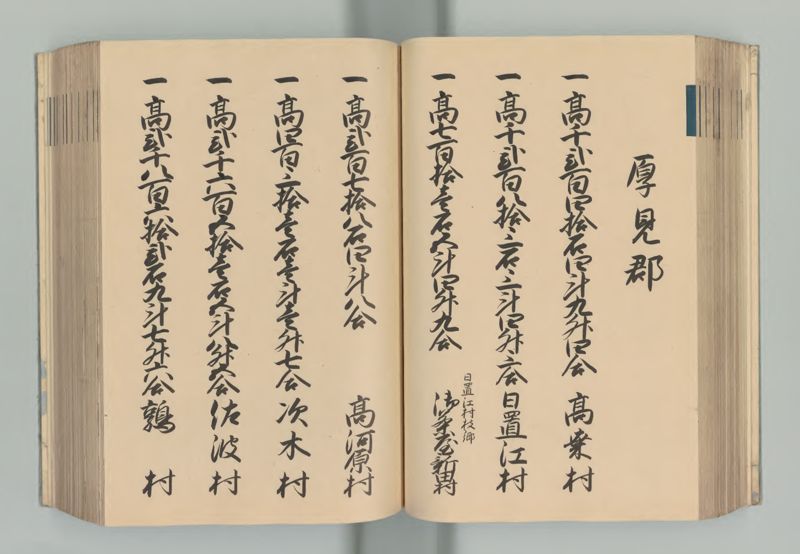 厚見郡
一高千弐百四拾石四斗九升四合 高桑村
一高千弐百八拾三石三斗四升三合 日置江村
一高七百拾壱石五斗四升九合 日置江村枝郷
御茶屋新田村
一高弐百七拾八石四斗八合 高河原村
一高四百三拾壱石壱斗壱升七合 次木村
一高弐千六百五拾壱石五斗 佐波村
一高弐千八百六拾弐石九斗七升六合 鶉村